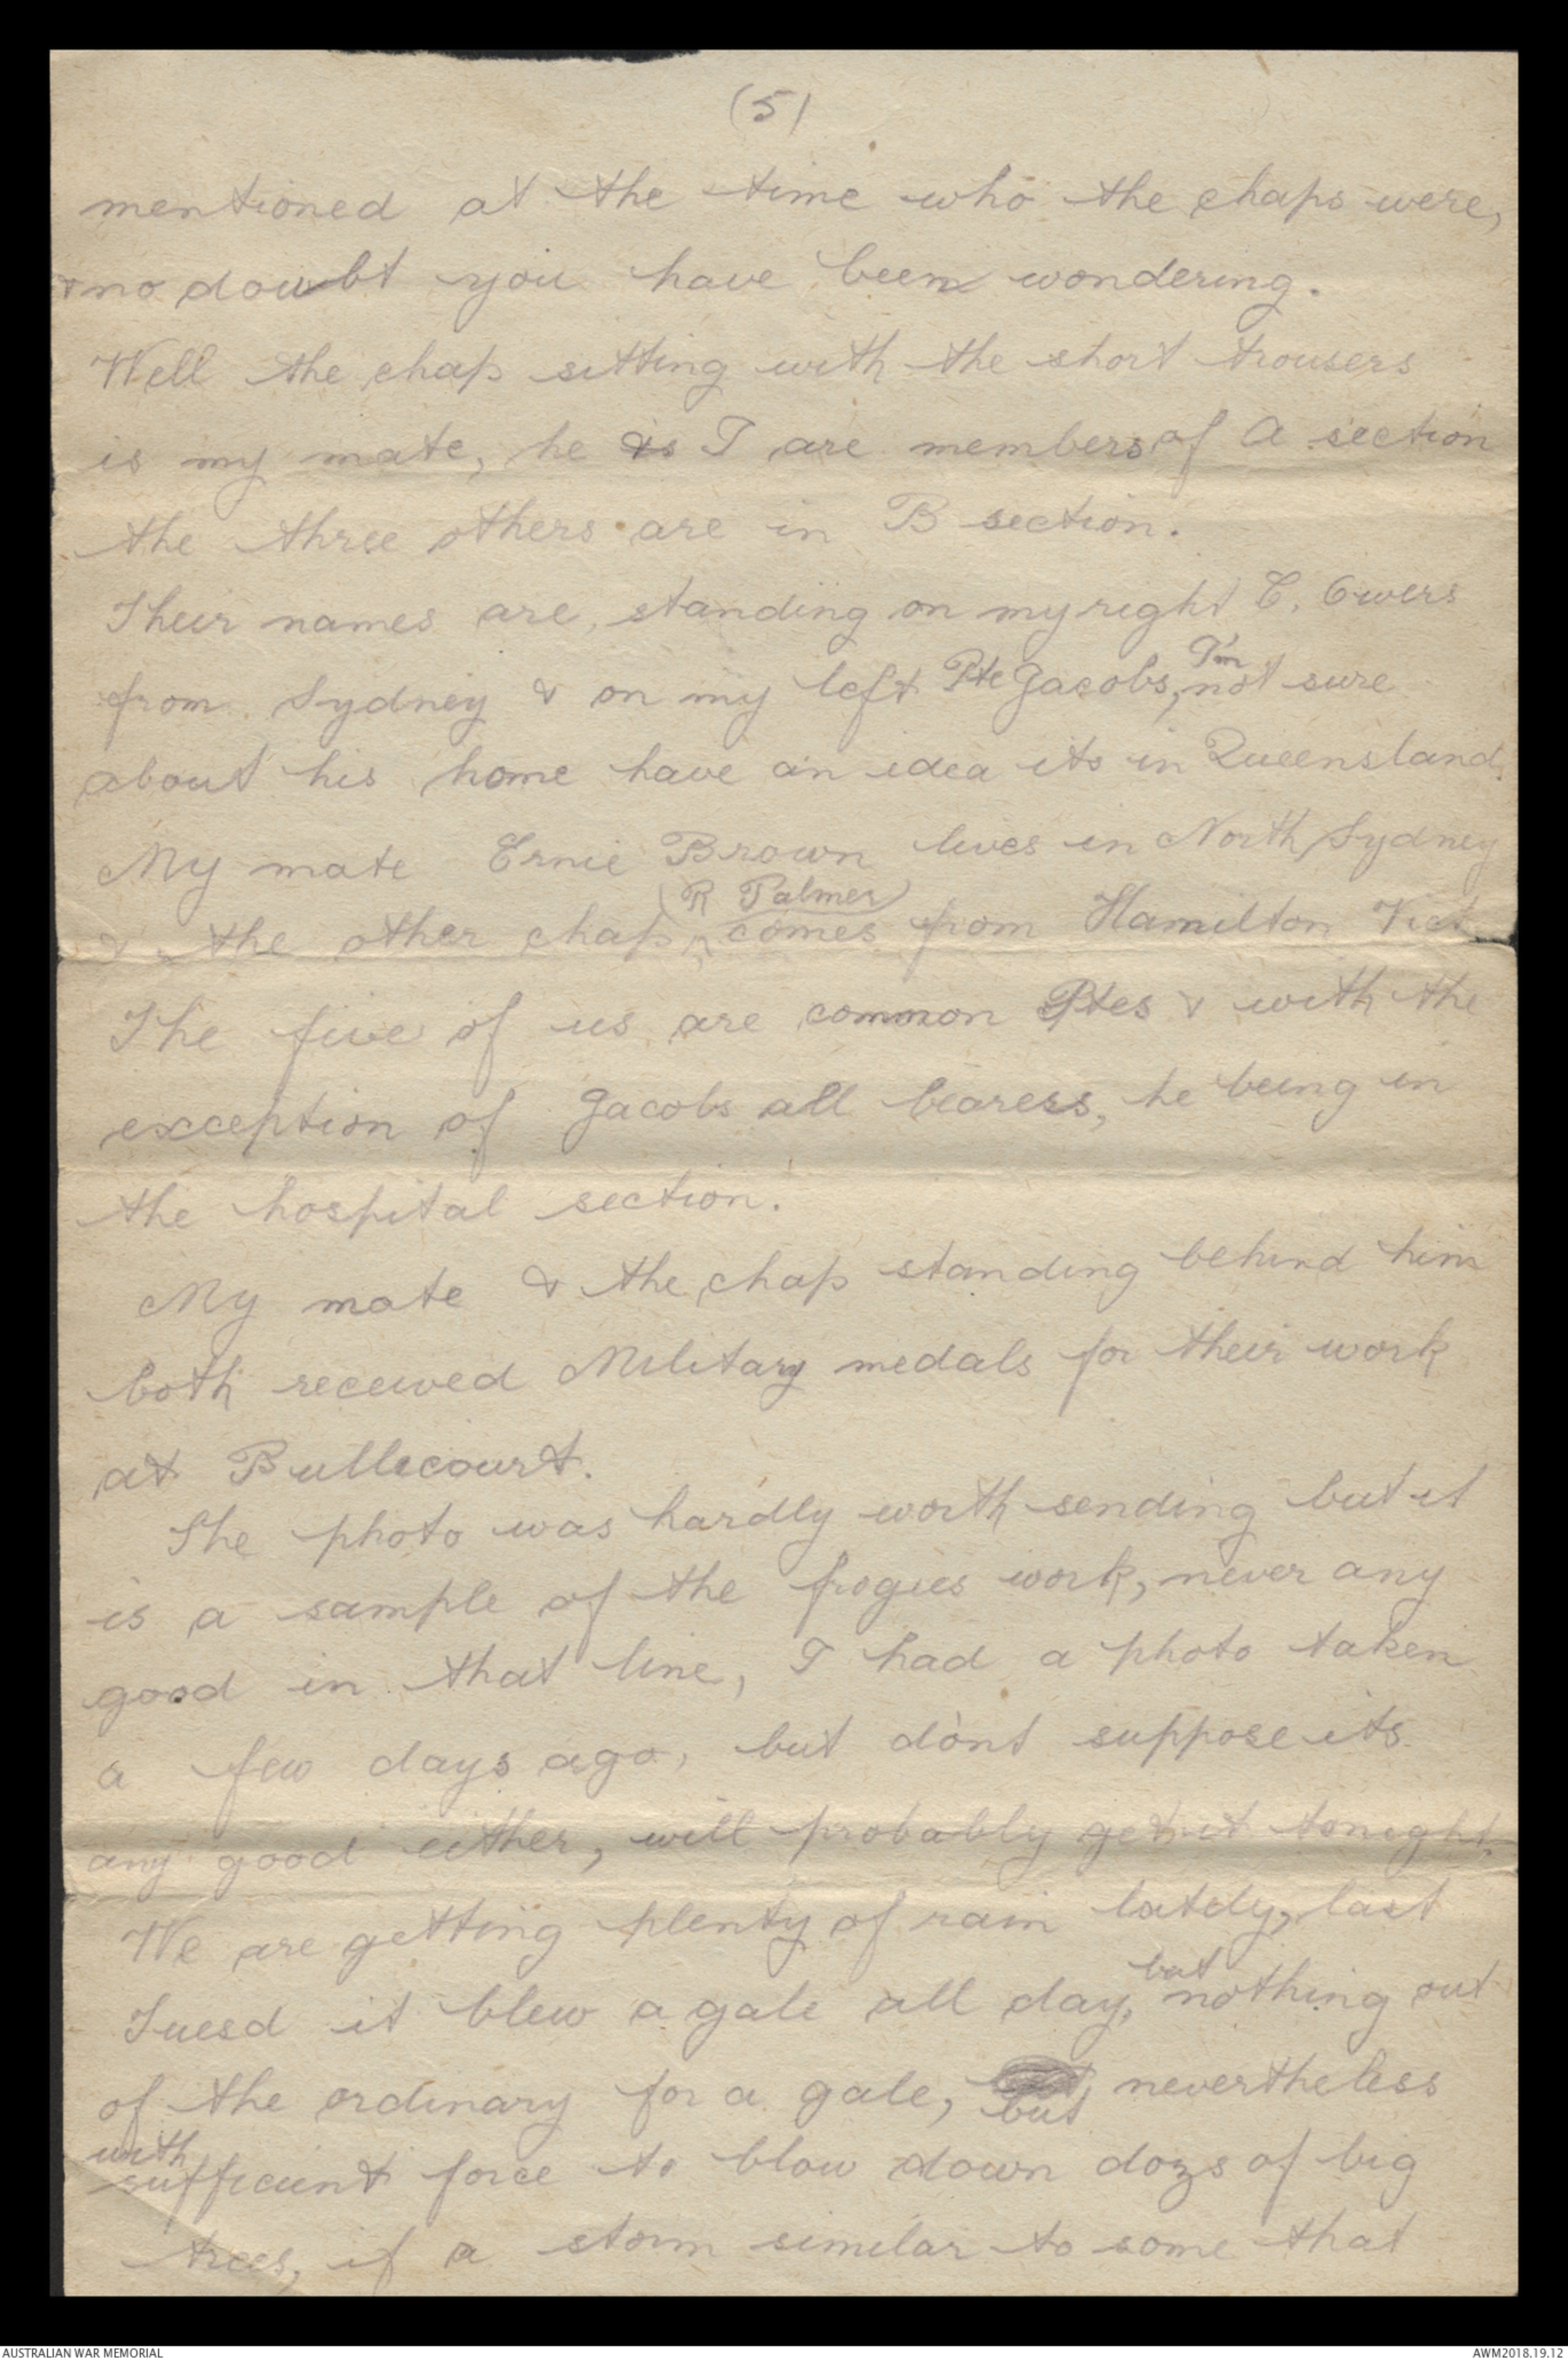 (5)
mentioned at the time who the chaps were,
& no doubt you have been wondering.
Well the chap sitting with the short trousers
is my mate, he & I are members of A section
the three others are in B section.
Their names are, standing on my right C. Owers
from Sydney & on my left Pte Jacobs, I'm not sure
about his home have an idea its in Queensland.
My mate Ernie Brown lives in North Sydney
& the other chap (R Palmer) comes from Hamilton Vict.
The five of us are common Ptes & with the
exception of Jacobs all bearers, he being in
the hospital section.
My mate & the chap standing behind him
both received Military medals for their work
at Bullecourt.
The photo was hardly worth sending but it
is a sample of the frogies work, never any
good in that line, I had a photo taken
a few days ago, but dont suppose its
any good either, will probably get it tonight.
We are getting plenty of rain lately, last
Tuesd it blew a gale all day, but nothing out
of the ordinary for a gale, but nevertheless
with sufficient force to blow down dozs of big
trees, if a storm similar to some that
AUSTRALIAN WAR MEMORIAL
AWM2018.19.12